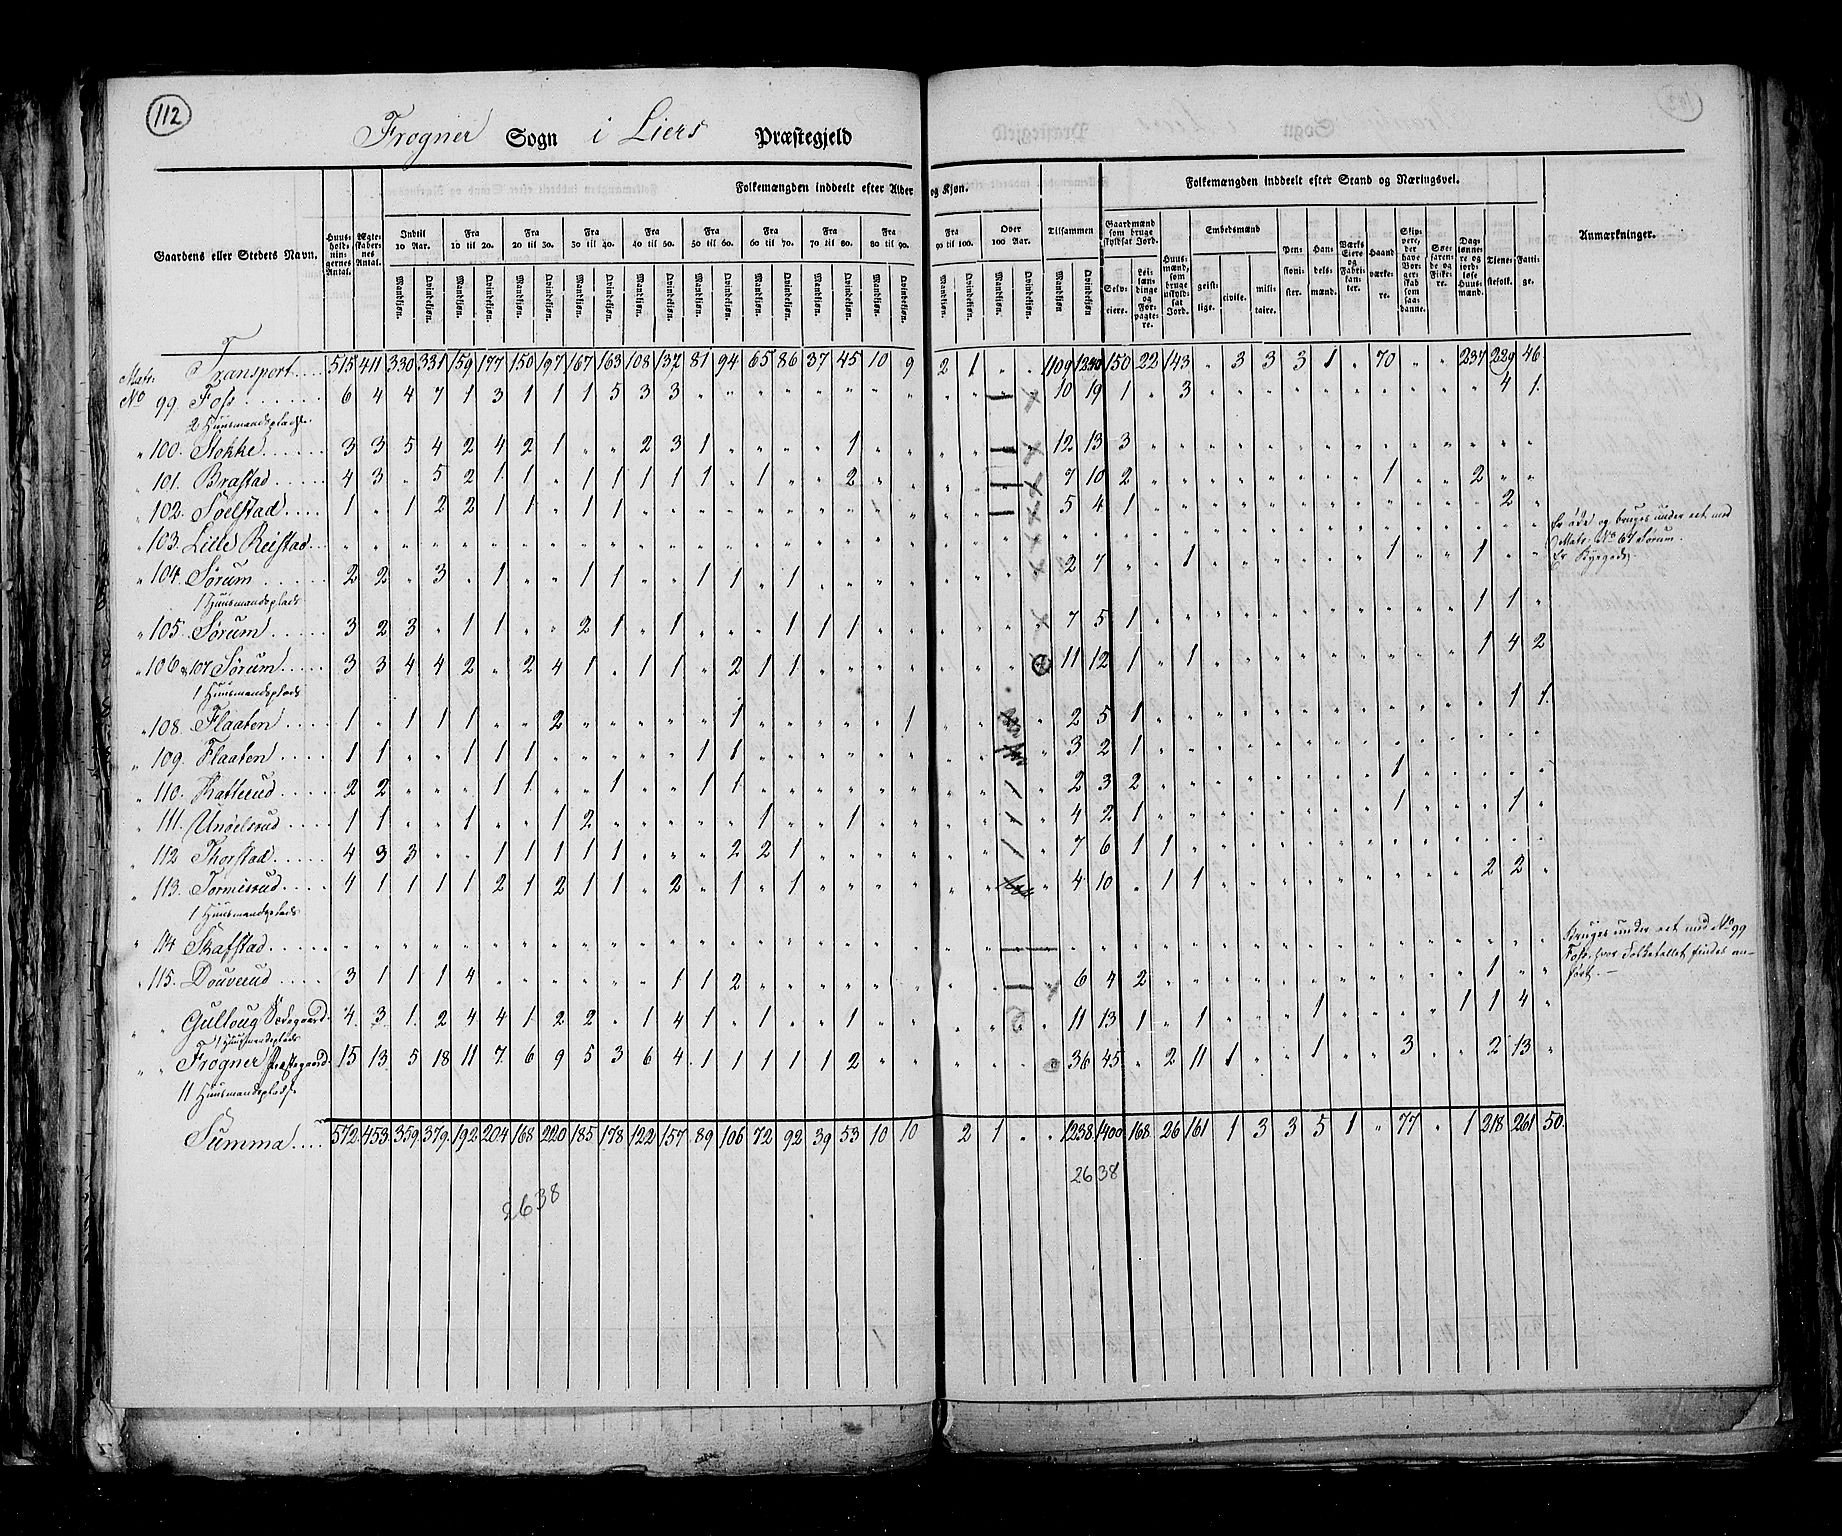 112
Frogner Sogn i Liers Præstegjeld
Folkemængden inddeelt efter Alder og Kjøn.
Folkemængden inddeelt efter Stand og Næringsvei.
Gaardens eller Stedets Navn.
Huusholdningernes Antal.
Ægteskabernes Antal.
Indtil 10 Aar.
Fra 10 til 20.
Fra 20 til 30.
Fra 30 til 40.
Fra 40 til 50.
Fra 50 til 60.
Fra 60 til 70.
Fra 70 til 80.
Fra 80 til 90.
Fra 90 til 100.
Over 100 Aar.
Tilsammen
Mandkjøn. Qvindekjøn.
Gaardmænd som bruge skyldsat Jord.
Selveiere.
Leilændinge og Forpagtere.
Huusmænd, som bruge uskyldsat Jord.
Embedsmænd
geistlige. civile. militaire.
Pensionister.
Handelsmænd.
Værks Eiere og Fabrikanter.
Haandværkere.
Skippere, der have Borgerskab som saadanne.
Søefarende og Fiskere.
Daglønnere og jordløse Huusmænd.
Tjenestefolk.
Fattige.
Anmærkninger.
Transport 515 411 330 331 159 177 150 197 167 163 108 137 81 94 65 86 37 45 10 9 2 1 " " 1109 1230 150 22 143 " 3 3 3 1 " 70 " " 237 229 46
Matr. No 99. Foss 6 4 4 7 1 3 1 1 1 5 3 3 " " " " " " " " " " 10 19 1 " 3 " " " " " " " " " " 4 1
2 Huusmandspladse
" 100. Stokke 3 3 5 4 2 4 2 1 " " 2 3 1 " " " " 1 " " " " 12 13 3
" 101. Brastad 4 3 " 5 2 1 1 " 1 1 1 1 1 " 1 " " 2 " " 7 10 2 " " " " " " " " 1 " " 2 " "
" 102. Soelstad 1 " 1 2 2 1 1 " 1 1 " " " " " " " " " " 5 4 1 " " " " " " " " " " " " 2 "
" 103. Lille Reistad
Er øde og bruges under eet med Matr: No 67 Sørum.
" 104. Sørum 2 2 " 3 " 1 " " 1 1 " " 1 1 " 1 " " " " 2 7 " " 1 " " " " " " 1 " " 1 " "
1 Huusmandsplads
" 105. Sørum 3 2 3 " 1 1 " " 2 1 " 1 " " " 1 1 1 " " 7 5 1 " " " " " " " " " " " 1 1 "
" 106 & 107 Sørum 3 3 4 4 2 " 2 4 1 " 1 1 " 2 1 1 " " " " 11 12 1 " 1 " " " " " " " " " 1 4 2
1 Huusmandsplads
" 108. Flaaten 1 " 1 1 1 " " 2 " " " " " 1 " " " " " 1 2 5 1 " " " " " " " " " " " " 1 1
" 109. Flaaten 1 1 " " 1 1 1 " " " " " 1 1 " " " " " " 3 2 1
" 110. Hatterud 2 2 " " " 1 1 " " 1 " " 1 1 " " " " " " 2 3 2 " " " " " " " " 1
" 111. 1 1 " " 1 " " 1 2 " " " " " 1 " " 1 " " 4 2 1 " " " " " " " " 1 " " " 1 "
" 112 Thorstad 4 3 3 " " 1 1 1 1 1 " " " 2 2 1 " " " " 7 6 1 1
" 113. Tormisrud 4 1 1 1 1 2 1 2 1 1 " 2 " 1 " 1 " " " " 4 10 " 1 1 " " " " " " " " " 2 2 "
1 Huusmandsplads
" 114 Skafstad
Bruges under eet med No 99 Foss, hvor Folketallet findes anført. —
" 115. Douverud 3 1 1 1 4 " " " " " " 1 1 2 " " " " " " 6 4 2 " " " " " " " " " " " 1 " "
" " Gulloug 4 3 1 2 4 4 1 2 2 " 1 4 1 " 1 " " 1 " " 11 13 1 " 1 " " " " 1 " " " " 1 1 4 "
1 Huusmandsplads
" " Frogner Præstegaard 15 13 5 18 11 7 6 9 5 3 6 4 1 1 1 1 1 2 " " 36 45 " 2 11 1 " " 1 " " 3 " " 2 13 "
11 Huusmandspladse
Summa 572 453 359 379 192 204 168 220 185 178 122 157 89 106 72 92 39 53 10 10 2 1 " " 1238 1400 168 26 161 1 3 3 5 1 " 77 " 1 218 261 50
2638
2638